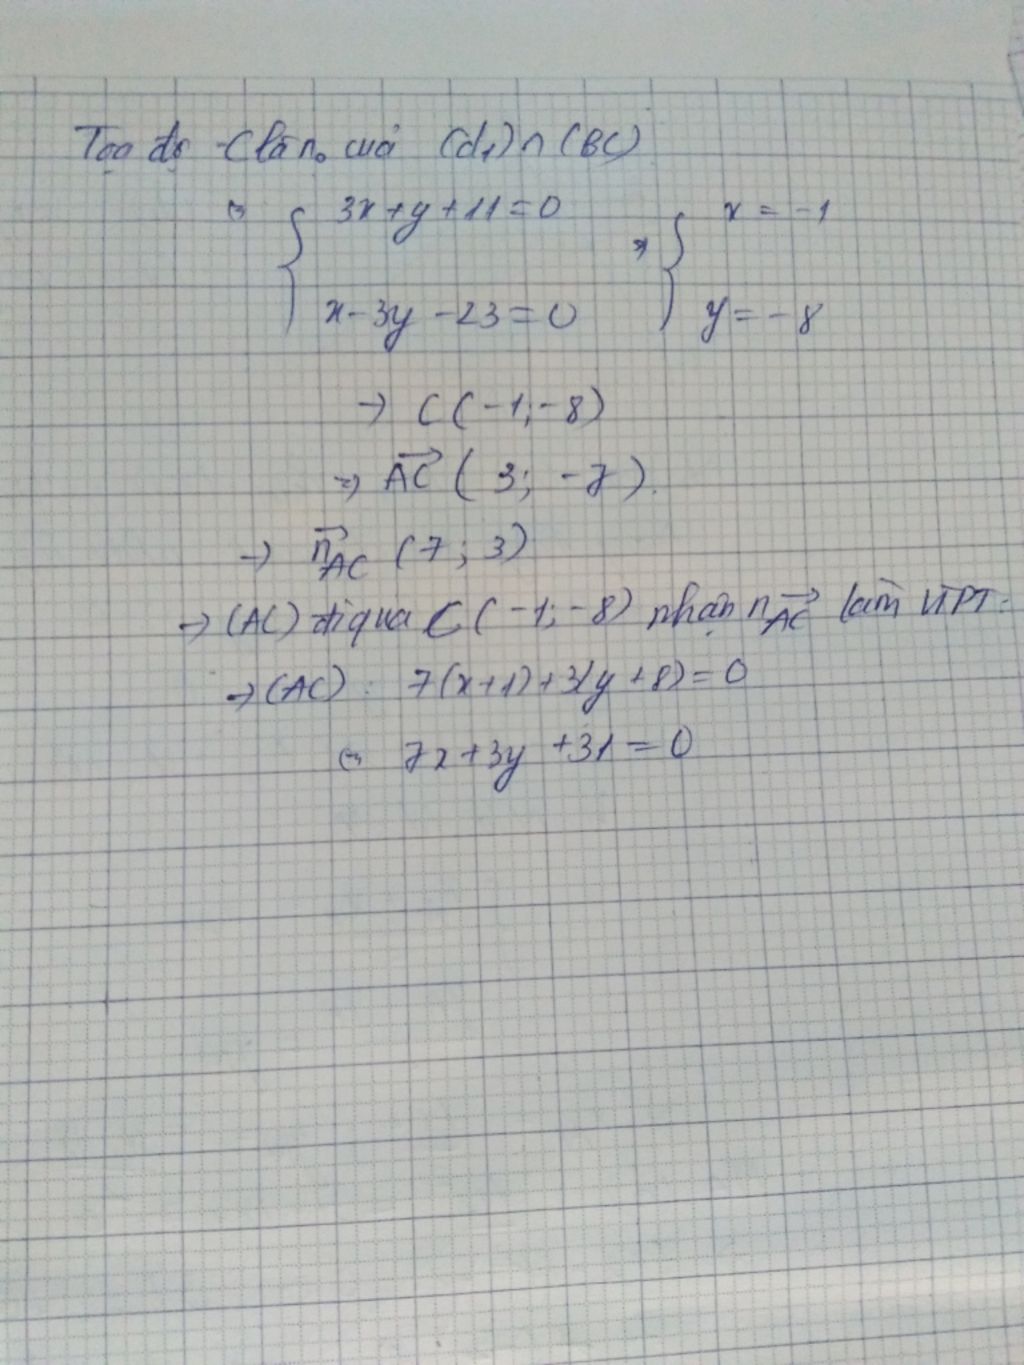 Tọa độ C là n₀ của (d₁) ∩ (BC)
⇔ { 3x + y + 11 = 0 ⇒ { x = -1
x - 3y - 23 = 0 y = -8
→ C(-1; -8)
⇒ \overrightarrow{AC} (3; -7).
→ \vec{n}_{AC} (7; 3)
→ (AC) đi qua C(-1; -8) nhận n_{\overrightarrow{AC}} làm VTPT:
→ (AC): 7(x+1) + 3(y+8) = 0
⇔ 7x + 3y + 31 = 0